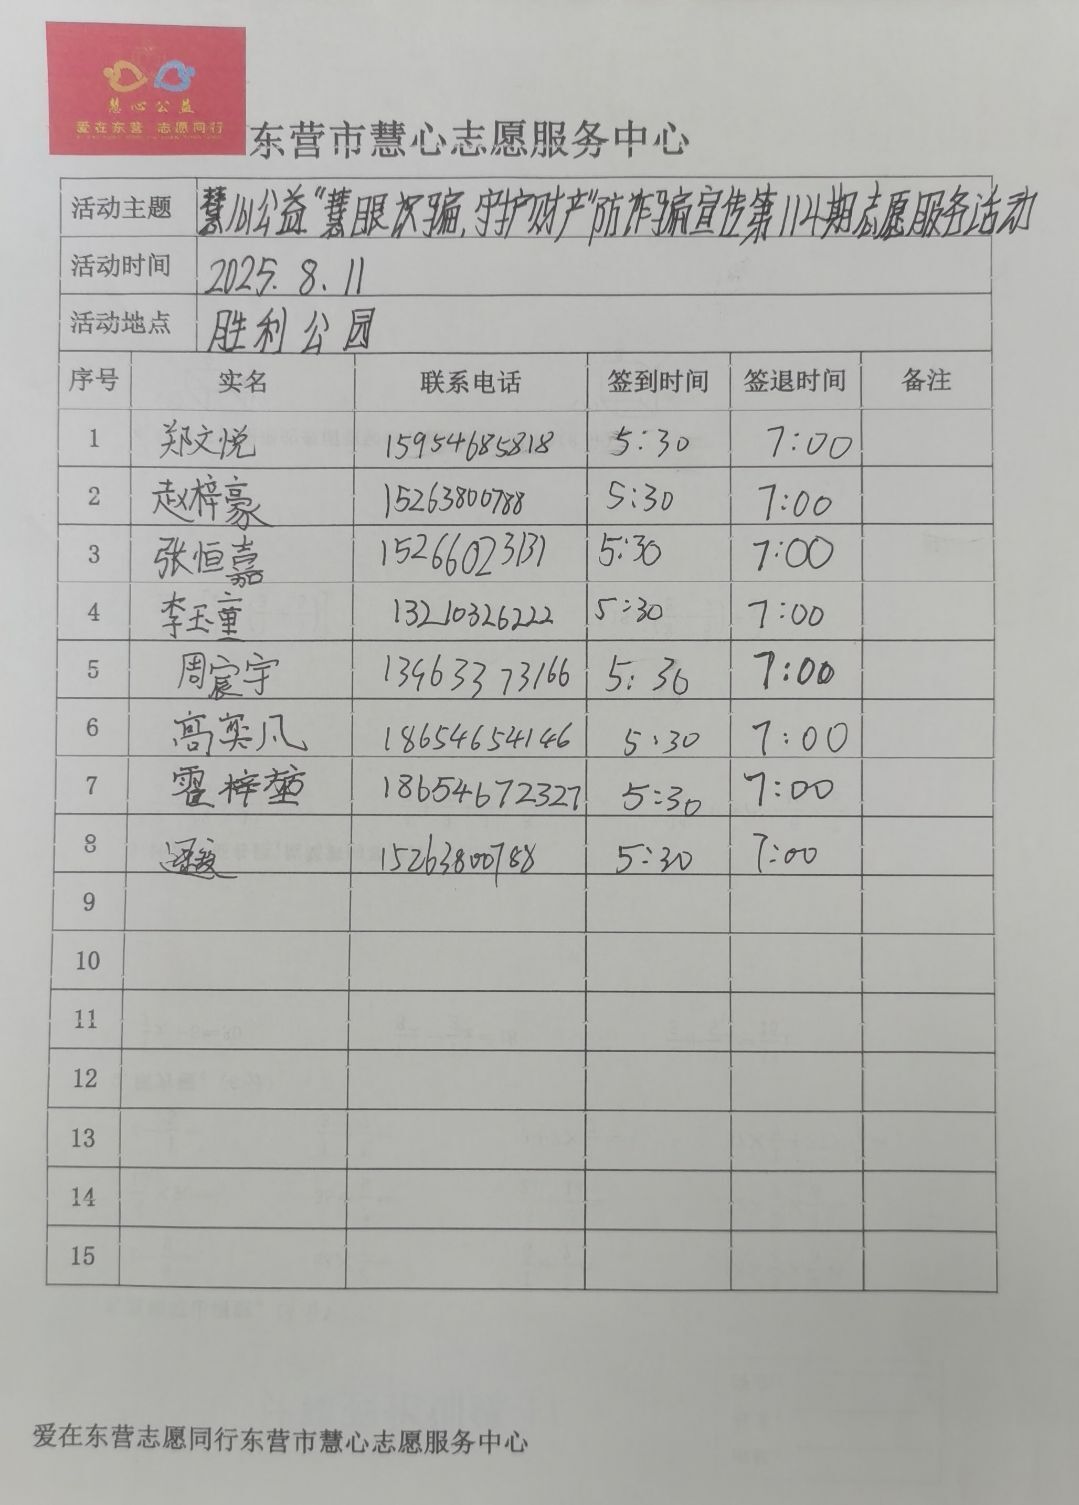 慧心公益
爱在东营 志愿同行
东营市慧心志愿服务中心
活动主题 慧心公益"慧眼识骗,守护财产"防诈骗宣传第114期志愿服务活动
活动时间 2025.8.11
活动地点 胜利公园
序号 实名 联系电话 签到时间 签退时间 备注
1 郑文悦 15954685818 5:30 7:00
2 赵梓豪 15263800788 5:30 7:00
3 张恒嘉 15266023131 5:30 7:00
4 李玉童 13210326222 5:30 7:00
5 周宸宇 13963373166 5:30 7:00
6 高奕凡 18654654146 5:30 7:00
7 霍梓堃 18654672327 5:30 7:00
8 15263800788 5:30 7:00
9
10
11
12
13
14
15
爱在东营志愿同行东营市慧心志愿服务中心